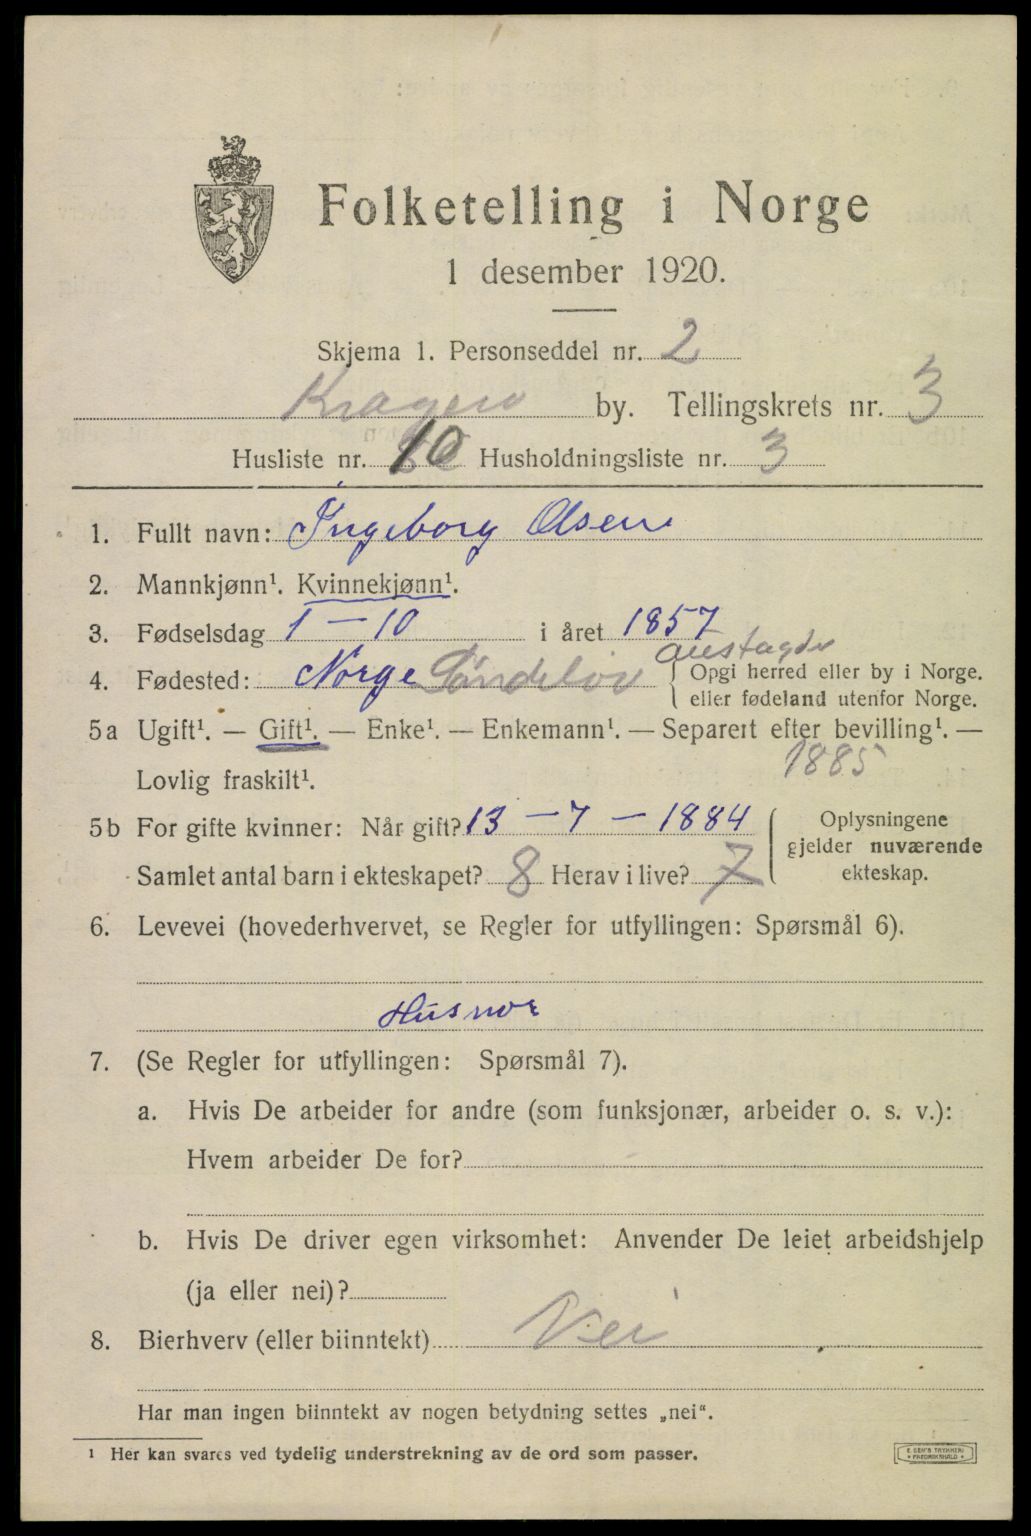 Folketelling i Norge
1 desember 1920.
Skjema 1. Personseddel nr. 2
Kragerø by. Tellingskrets nr. 3
Husliste nr. 10 Husholdningsliste nr. 3
1. Fullt navn: Ingeborg Olsen
2. Mannkjønn¹. Kvinnekjønn¹.
3. Fødselsdag 1 – 10 i året 1857
Austagder
4. Fødested: Norge Søndeløv { Opgi herred eller by i Norge.
eller fødeland utenfor Norge.
5a Ugift¹. — Gift¹. — Enke¹. — Enkemann¹. — Separert efter bevilling¹. —
Lovlig fraskilt¹. 1885
5b For gifte kvinner: Når gift? 13 – 7 – 1884
Samlet antal barn i ekteskapet? 8 Herav i live? 7
Oplysningene
gjelder nuværende
ekteskap.
6. Levevei (hovederhvervet, se Regler for utfyllingen: Spørsmål 6).
Husmor
7. (Se Regler for utfyllingen: Spørsmål 7).
a. Hvis De arbeider for andre (som funksjonær, arbeider o. s. v.):
Hvem arbeider De for?
b. Hvis De driver egen virksomhet: Anvender De leiet arbeidshjelp
(ja eller nei)?
8. Bierhverv (eller biinntekt) Nei
Har man ingen biinntekt av nogen betydning settes „nei“.
¹ Her kan svares ved tydelig understrekning av de ord som passer.
E. SEM'S TRYKKERI
FREDRIKSHALD